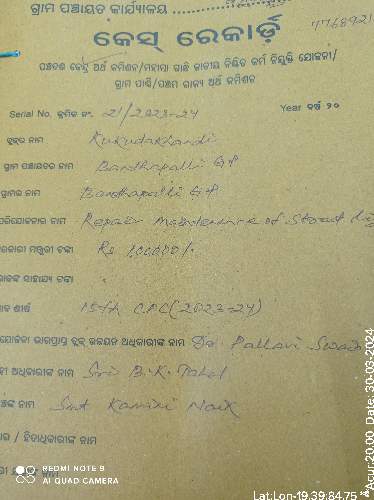 ଗ୍ରାମ ପଞ୍ଚାୟତ କାର୍ଯ୍ୟାଳୟ ..............
କେସ୍ ରେକର୍ଡ଼
ପଞ୍ଚଦଶ କେନ୍ଦ୍ର ଅର୍ଥ କମିଶନ/ମହାତ୍ମା ଗାନ୍ଧି ଜାତୀୟ ନିଶ୍ଚିତ କର୍ମ ନିଯୁକ୍ତି ଯୋଜନା/
ଗ୍ରାମ ପାଣ୍ଠି/ପଞ୍ଚମ ରାଜ୍ୟ ଅର୍ଥ କମିଶନ
Serial No. କ୍ରମିକ ନଂ. 21/2023-24 Year ବର୍ଷ ୨୦
ବ୍ଲକ୍‌ର ନାମ Kukudakhandi
ଗ୍ରାମ ପଞ୍ଚାୟତର ନାମ Bandhapalli GP
ଗ୍ରାମର ନାମ Bandhapalli GP
ନାମ Repair Maintenance of Street
ମଞ୍ଜୁରୀ ଟଙ୍କା Rs 1,00,000/-
ସାହାଯ୍ୟ ଟଙ୍କା
ଶୀର୍ଷ 15th CFC (2023-24)
ଭାରପ୍ରାପ୍ତ ବ୍ଲକ୍ ଉନ୍ନୟନ ଅଧିକାରୀଙ୍କ ନାମ Pallavi Swain
ଅଧିକାରୀଙ୍କ ନାମ Sri B.K.
ନାମ Smt Kamini Naik
/ ହିତାଧିକାରୀଙ୍କ ନାମ
ନାମ
REDMI NOTE 9
AI QUAD CAMERA
Lat:Lon-19.39:84.75 **Acur:20.00 Date: 30-03-2024